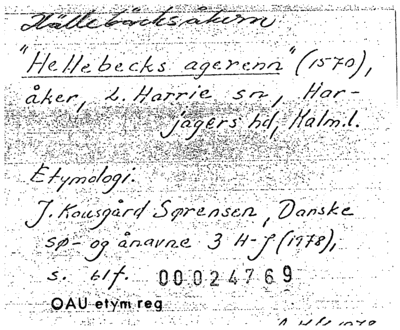 Hällebäcksåkern
"Hellebecks agerenn" (1570),
åker, L. Harrie sn, Har-
jagers hd, Malm.l.
Etymologi:
J. Kousgård Sørensen, Danske
sø- og ånavne 3 H-J (1978),
s. 61f. 00024769
OAU etym reg